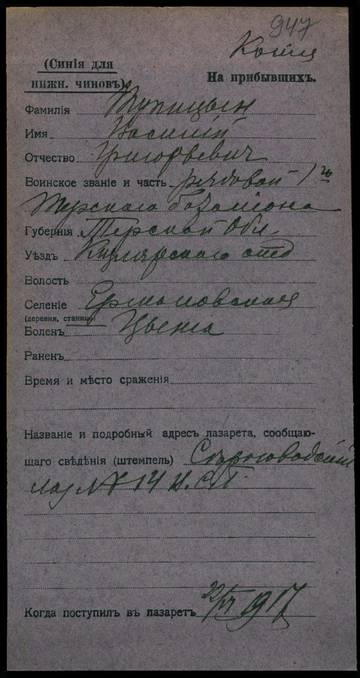 947
Копия
(Синія для
нижн. чиновъ)
На прибывшихъ.
Фамилія Тупицын
Имя Василій
Отчество Григорьевич
Воинское званіе и часть рядовой 1го
Терского баталиона
Губернія Терской Обл
Уѣздъ Кизлярского отд
Волость
Селеніе Ермоловская
(деревня, станица)
Боленъ Цынга
Раненъ
Время и мѣсто сраженія
Названіе и подробный адресъ лазарета, сообщаю-
щаго свѣдѣнія (штемпель)
лаз № 14
Когда поступилъ въ лазаретъ 1917